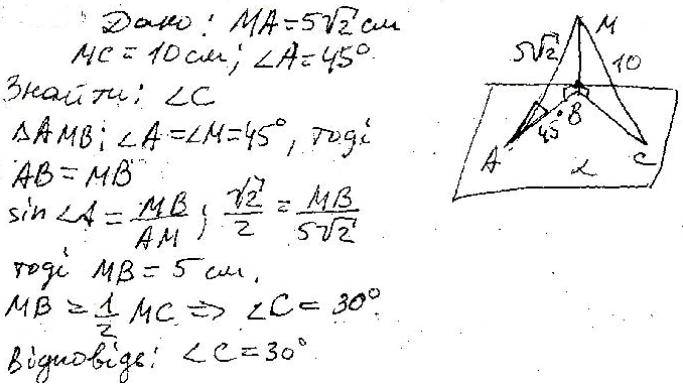 Дано: MA=5√2 см
MC=10 см; ∠A=45°
Знайти: ∠C
ΔAMB; ∠A=∠M=45°, тоді
AB=MB
sin∠A = MB/AM; √2/2 = MB/5√2
тоді MB=5 см.
MB = 1/2 MC => ∠C=30°.
Відповідь: ∠C=30°
M
5√2
10
45°
B
A
C
α